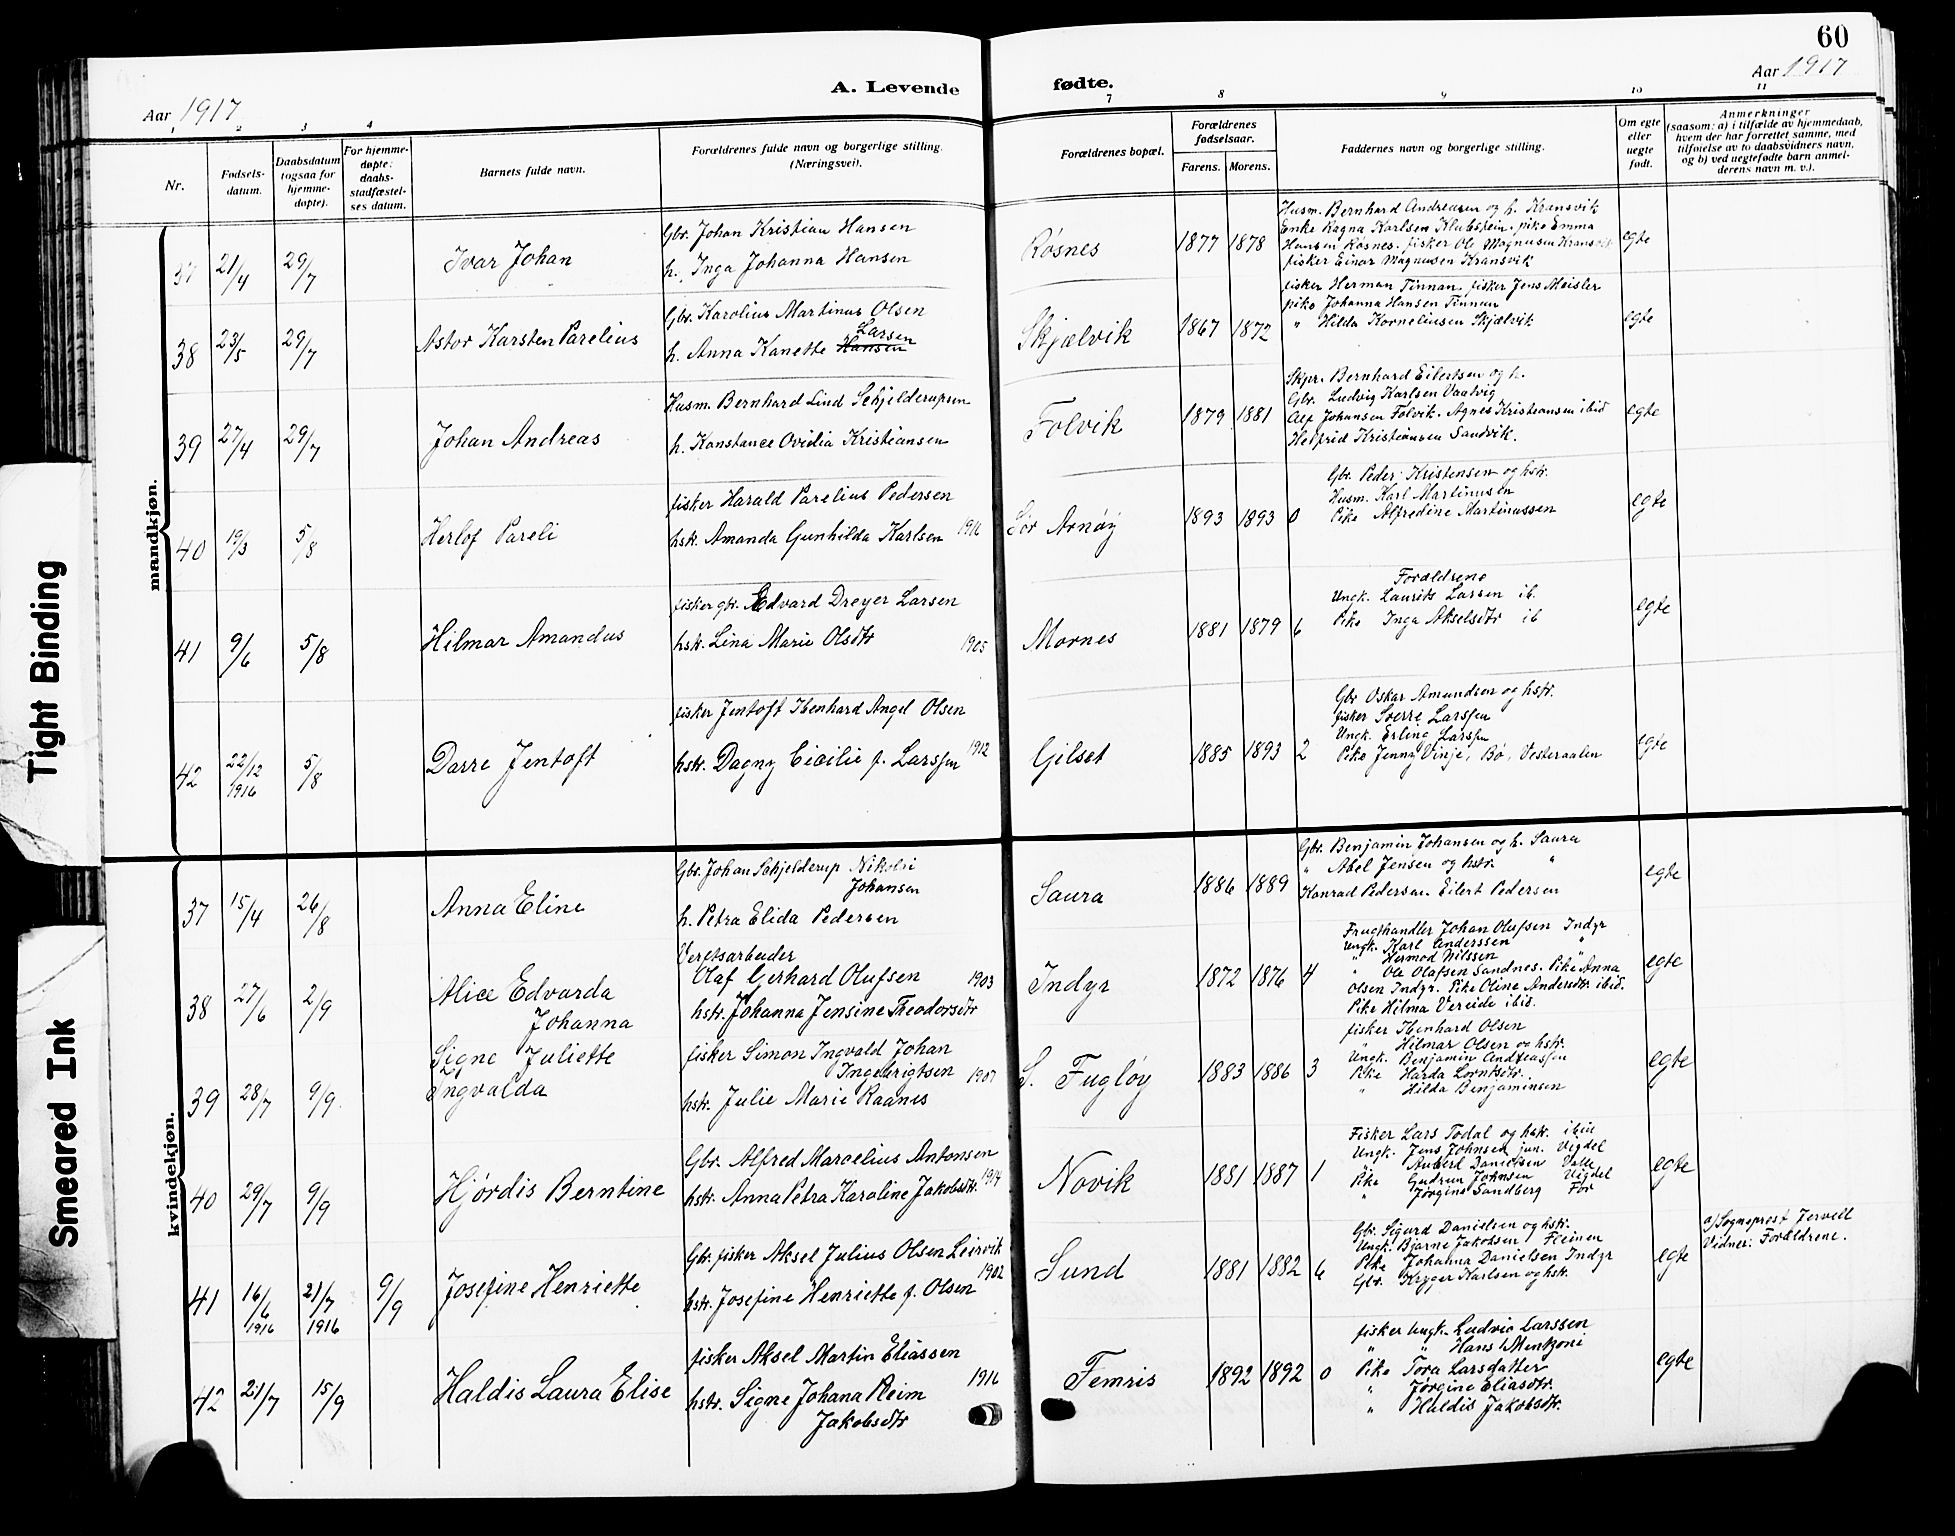 60
Aar 1917
A. Levende
fødte.
Aar 1917
1 2 3 4
7 8 9 10 11
Nr.
Fødsels-
datum.
Daabsdatum
(ogsaa for
hjemme-
døpte).
For hjemme-
døpte:
daabs-
stadfæstel-
ses datum.
Barnets fulde navn.
Forældrenes fulde navn og borgerlige stilling.
(Næringsvei).
Forældrenes bopæl.
Forældrenes
fødselsaar.
Farens. Morens.
Faddernes navn og borgerlige stilling.
Om egte
eller
uegte
født.
Anmerkninger
(saasom: a) i tilfælde av hjemmedaab,
hvem der har forrettet samme, med
tilføielse av to daabsvidners navn,
og b) ved uegtefødte barn anmel-
derens navn m. v.).
mandkjøn.
37 21/4 29/7 Ivar Johan
Gbr. Johan Kristian Hansen
h. Inga Johanna Hansen
Røsnes 1877 1878
Husm. Bernhard Andreasen og h. Kransvik
Enke Ragna Karlsen Klubstein. pike Emma
Hansen Røsnes. fisker Ole Magnusen Kransvik
fisker Einar Magnusen Kransvik
egte
38 23/5 29/7 Astor Karsten Parelius
Gbr. Karolius Martinus Olsen
Larsen
h. Anna Kanette Hansen
Skjælvik 1867 1872
fisker Herman Tinnan. fisker Jens Meisler
pike Johanna Hansen Tinnan
" Hilda Korneliusen Skjælvik
egte
39 27/4 29/7 Johan Andreas
Husm. Bernhard Lind Schjelderupsen
h. Konstance Ovidia Kristiansen
Folvik 1879 1881
Skpr. Bernhard Eilertsen og h.
Gbr. Ludvig Karlsen Vaatvig
Alf Johansen Følvik. Agnes Kristiansen ibid
Helfrid Kristiansen Sandvik.
egte
40 19/3 5/8 Herlof Pareli
fisker Harald Parelius Pedersen
hstr. Amanda Gunhilda Karlsen 1916
Sør Arnøy 1893 1893 0
Gbr. Peder Kristensen og hstr.
Husm. Karl Martinusen
Pike Alfredine Martinussen
egte
41 9/6 5/8 Hilmar Amandus
fisker gbr. Edvard Dreyer Larsen
hstr. Lina Marie Olsdtr 1905
Mornes 1881 1879 6
Forældrene
Ungk. Laurits Larsen ib.
Pike Inga Akselsdtr ib
egte
42 22/12 1916 5/8 Darre Jentoft
fisker Jentoft Ibenhard Angel Olsen
hstr. Dagny Cicilie f. Larssen 1912
Gilset 1885 1893 2
Gbr Oskar Amundsen og hstr.
fisker Sverre Larssen
Ungk. Erling Larssen
Pike Jenny Vinje, Bø, Vesteraalen
egte
kvindekjøn.
37 15/4 26/8 Anna Eline
Gbr. Johan Schjelderup Nikolai
Johansen
h. Petra Elida Pedersen
Saura 1886 1889
Gbr. Benjamin Johansen og h. Saura
" Abel Jensen og hstr. "
Konrad Pedersen. Eilert Pedersen
egte
38 27/6 2/9 Alice Edvarda
Johanna
Olaf Gerhard Olufsen 1903
hstr. Johanna Jensine Theodorsdtr
Indyr 1872 1876 4
Frugthandler Johan Olufsen Indyr
Ungk. Karl Anderssen "
" Hermod Nilssen
" Ole Olafsen Sandnes. Pike Anna
Olsen Indyr. Pike Oline Andersdtr ibid.
Pike Hilma Vereide ibid.
egte
39 28/7 9/9 Signe Juliette
Ingvalda
fisker Simon Ingvald Johan
Ingebrigtsen 1907
hstr. Julie Marie Raanes
S. Fugløy 1883 1886 3
fisker Ibenhard Olsen
" Hilmar Olsen og hstr.
Ungk. Benjamin Andreassen
Pike Harda Lorntsdtr.
" Hilda Benjaminsen
egte
40 29/7 9/9 Hjørdis Berntine
Gbr. Alfred Marcelius Antonsen
hstr. Anna Petra Karoline Jakobsdtr. 1914
Novik 1881 1887 1
Fisker Lars Todal og hstr. ibid
Ungk. Jens Johnsen jun. Vigdel
" Anberd Danielsen Valle
Pike Gudrun Johnsen Vigdel
" Jørgine Sandberg For
egte
41 16/6 1916 21/7 1916 9/9 Josefine Henriette
Gbr. fisker Aksel Julius Olsen Leirvik
hstr. Josefine Henriette f. Olsen 1902
Sund 1881 1882 6
Gbr. Sigurd Danielsen og hstr.
Ungk. Bjarne Jakobsen Fleinen
Pike Johanna Danielsen Indyr
Gbr. Kryger Karlsen og hstr.
egte
a) Sogneprest Jervell
Vidner: Forældrene.
42 21/7 15/9 Haldis Laura Elise
fisker Aksel Martin Eliassen
hstr. Signe Johana Reim 1916
Jakobsdtr
Femris 1892 1892 0
fisker Ungk. Ludvic Larssen
" " Hans Mentzoni
Pike Tora Larsdatter
" Jørgine Eliasdtr.
" Haldis Jakobsdtr.
egte
Tight Binding
Smeared Ink